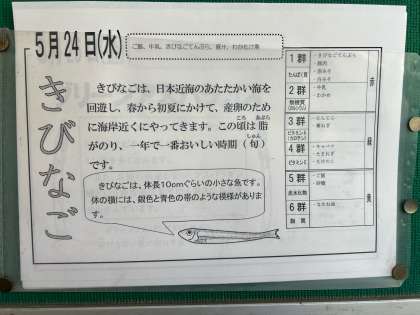 5月24日(水)
ご飯、牛乳、きびなごてんぷら、豚汁、わかめ
きびなご
きびなごは、日本近海のあたたかい海を
回遊し、春から初夏にかけて、産卵のため
に海岸近くにやってきます。この頃は脂
ころ あぶら
がのり、一年で一番おいしい時期(旬)
しゅん
です。
きびなごは、体長10cmぐらいの小さな魚です。
体の横には、銀色と青色の帯のような模様がありま
す。
1群
たんぱく質
・きびなごてんぷら
・豚肉
2群
・牛乳
・わかめ
3群
・にんじん
4群
・キャベツ
・たまねぎ
5群
炭水化物
・ご飯
・砂糖
6群
脂質
・なたね油
赤
緑
黄